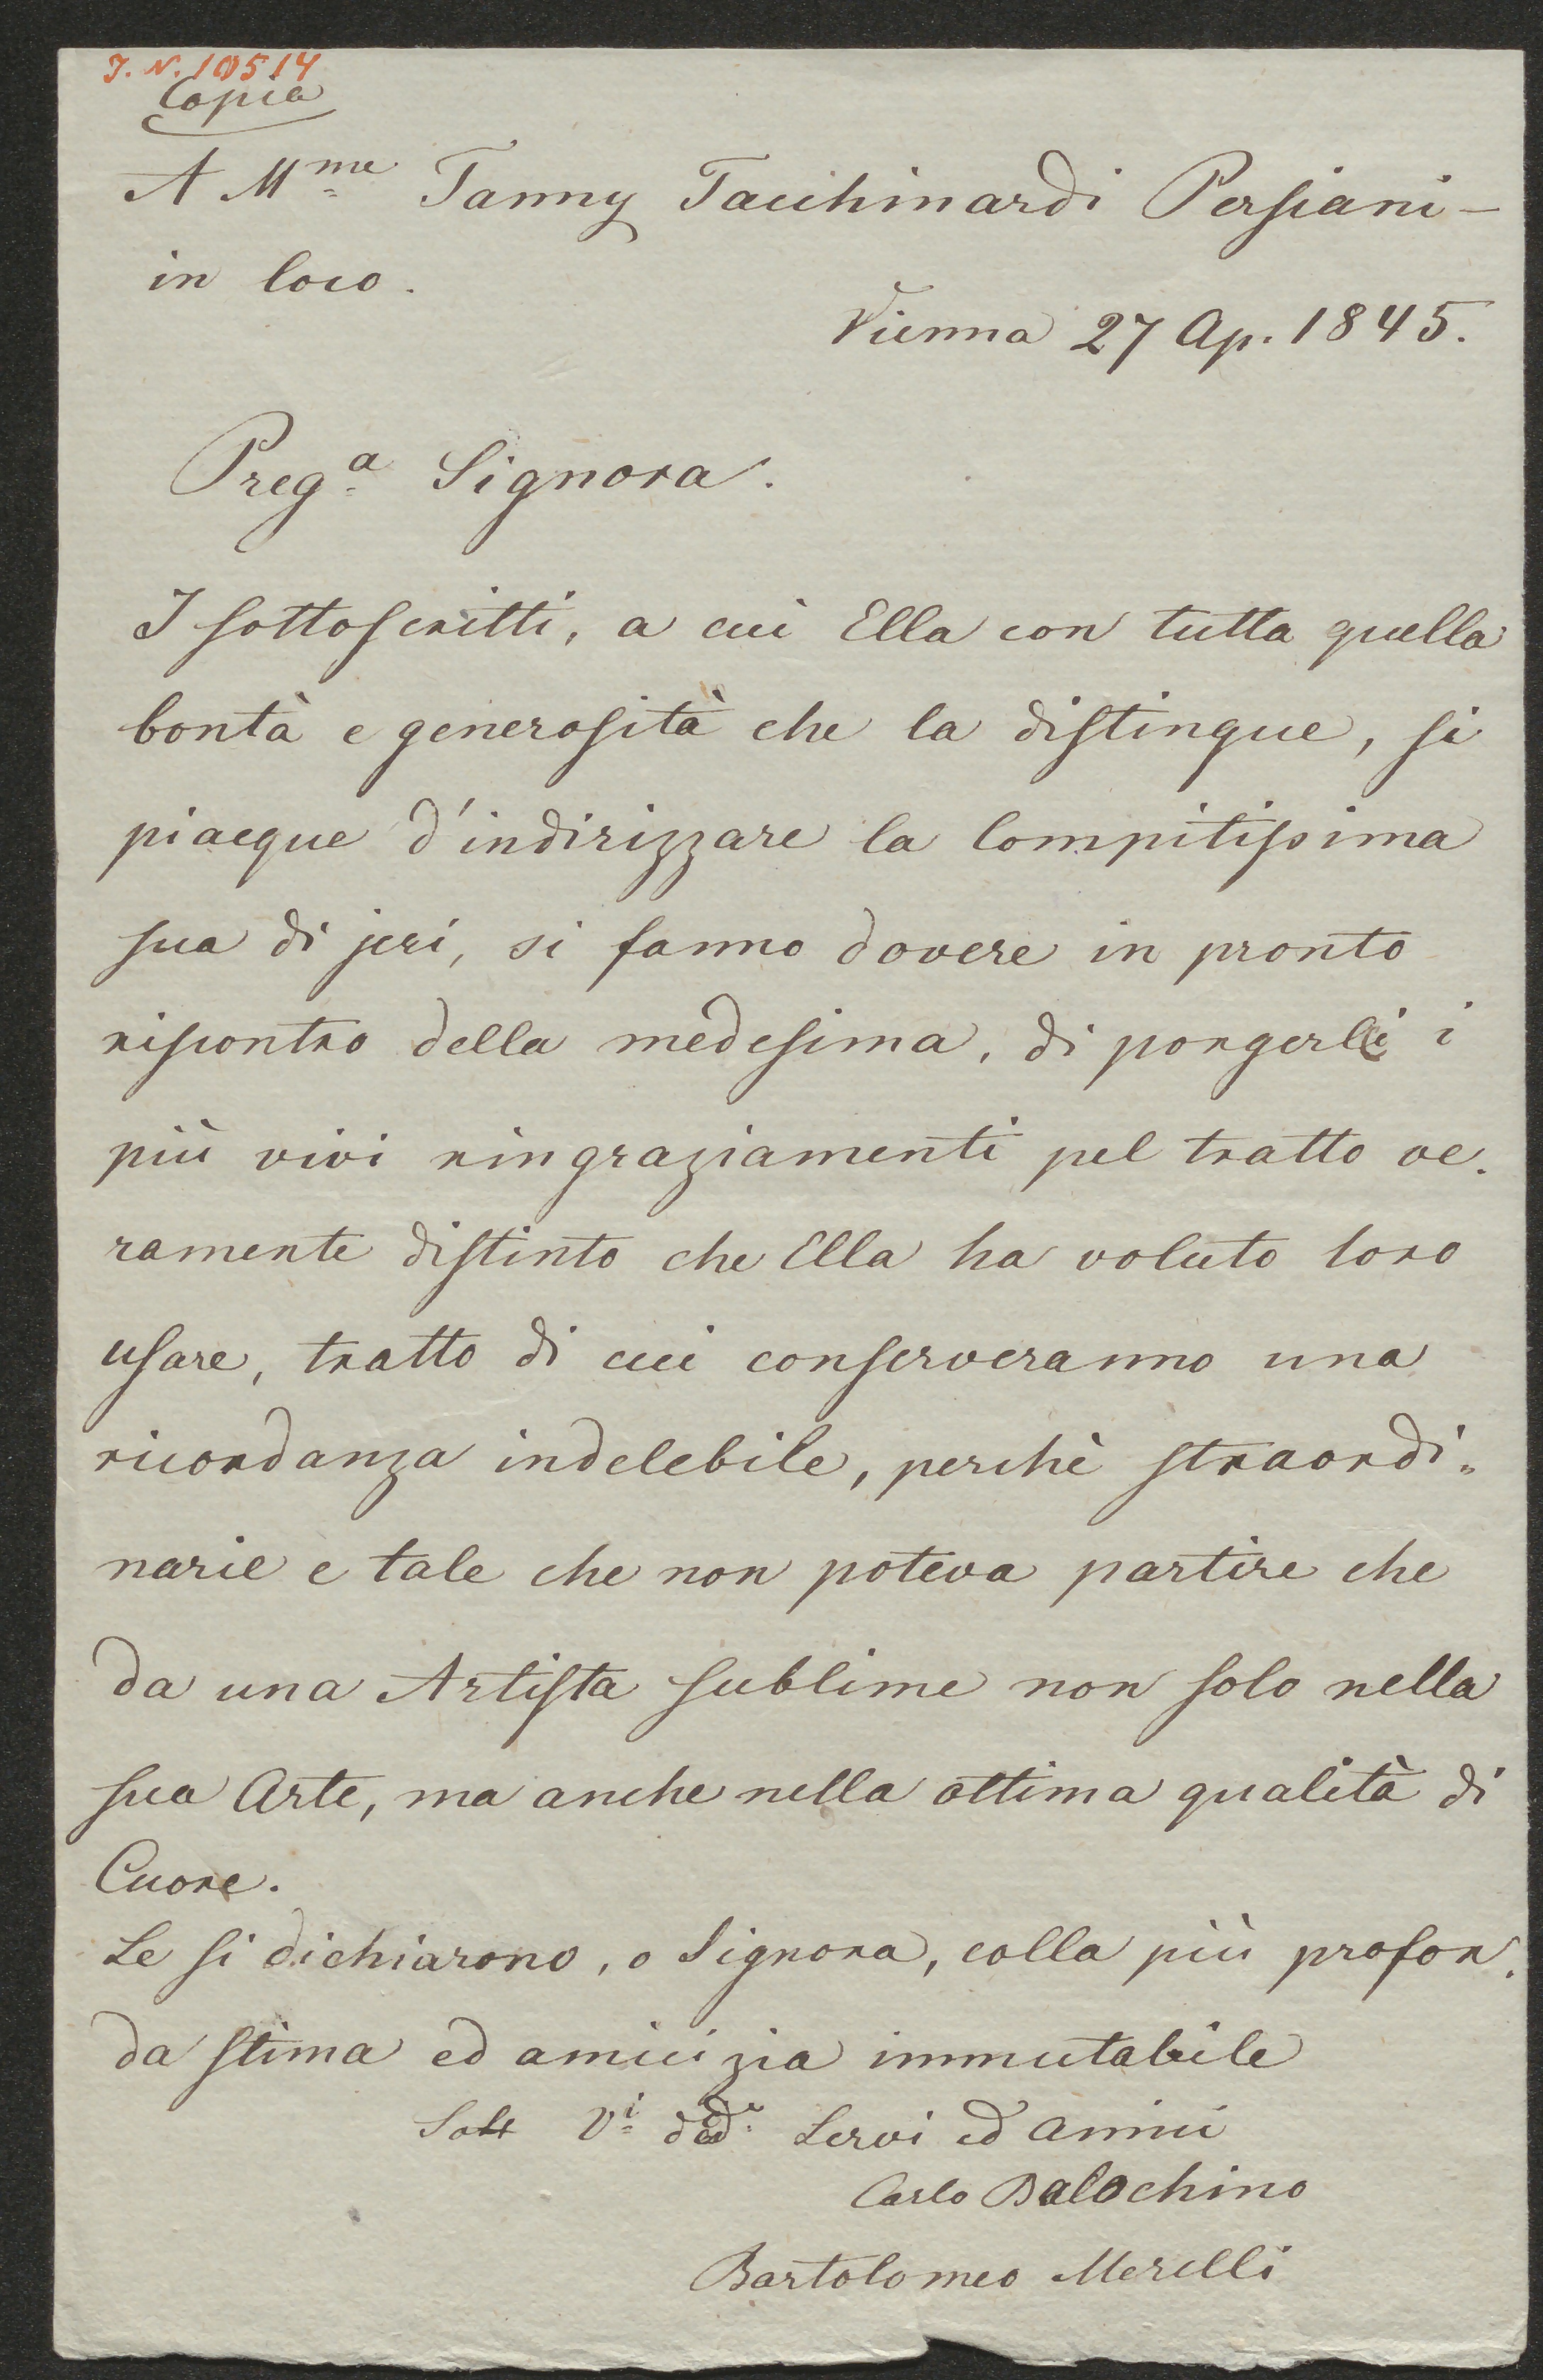 J. N. 10514
Copia
A Mme Fanny Tacchinardi Persiani -
in loco.
Vienna 27 Ap. 1845.
Prega Signora.
I sottoscritti, a cui Ella con tutta quella
bontà e generosità che la distingue, si
piacque d'indirizzare la Compitissima
sua di jeri, si fanno dovere in pronto
riscontro della medesima, di porgerle i
più vivi ringraziamenti pel tratto ve-
ramente distinto che Ella ha voluto loro
usare, tratto di cui conserveranno una
ricordanza indelebile, perchè straordi-
narie e tale che non poteva partire che
da una Artista sublime non solo nella
sua Arte, ma anche nella ottima qualità di
Cuore.
Le si dichiarono, o Signora, colla più profon-
da stima ed amicizia immutabile
Servi ed amici
Carlo Balochino
Bartolomeo Merelli